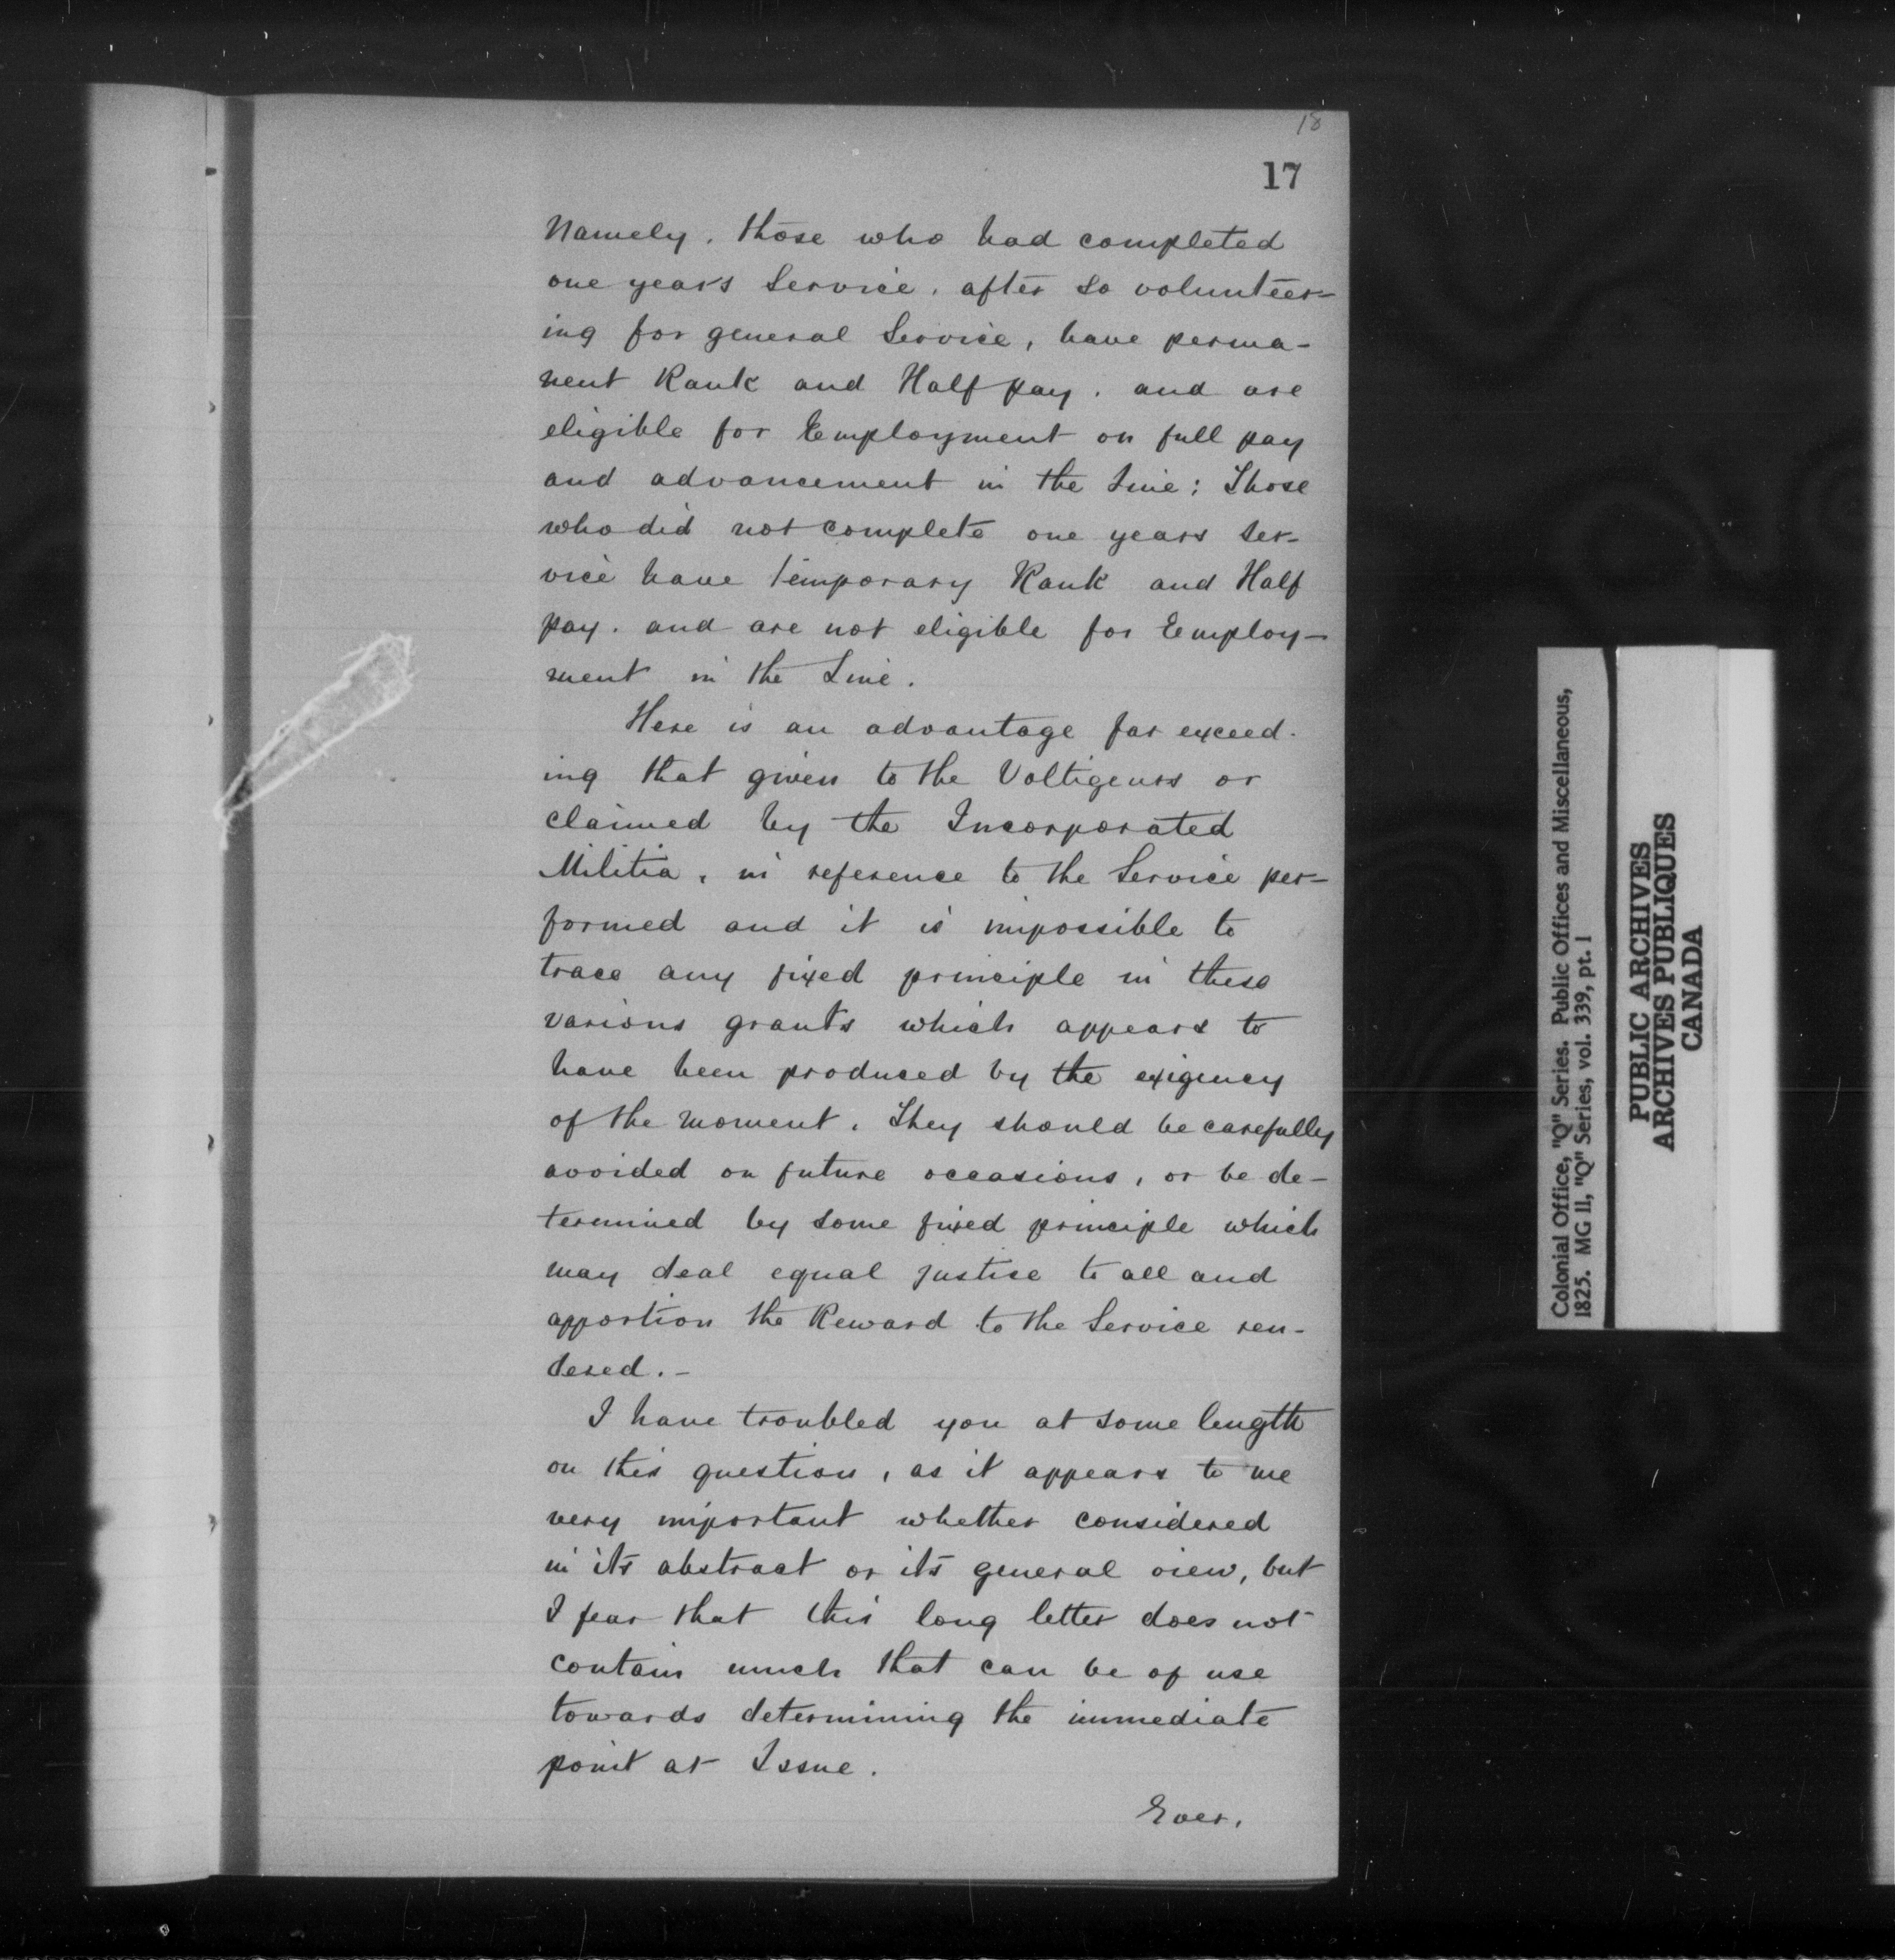 18
17
Namely, those who had completed
one years Service, after so volunteer-
ing for general Service, have perma-
nent Rank and Half pay, and are
eligible for Employment on full pay
and advancement in the Line: Those
who did not complete one years Ser-
vice have temporary Rank and Half
pay. and are not eligible for Employ-
ment in the Line.
Here is an advantage far exceed-
ing that given to the Voltigeurs or
claimed by the Incorporated
Militia, in reference to the Service per-
formed and it is impossible to
trace any fixed principle in these
various grants which appears to
have been produced by the exigency
of the moment. They should be carefully
avoided on future occasions, or be de-
termined by some fixed principle which
may deal equal justice to all and
apportion the Reward to the Service ren-
dered.-
I have troubled you at some length
on this question, as it appears to me
very important whether considered
in its abstract or its general view, but
I fear that this long letter does not
contain much that can be of use
towards determining the immediate
point at Issue.
Ever,
Colonial Office, "Q" Series. Public Offices and Miscellaneous,
1825. MG 11, "Q" Series, vol. 339, pt. 1
PUBLIC ARCHIVES
ARCHIVES PUBLIQUES
CANADA